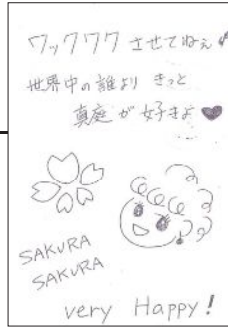 ワックワク させてねぇ
世界中の誰より きっと
真庭 が 好きよ ♥
SAKURA
SAKURA
very Happy!